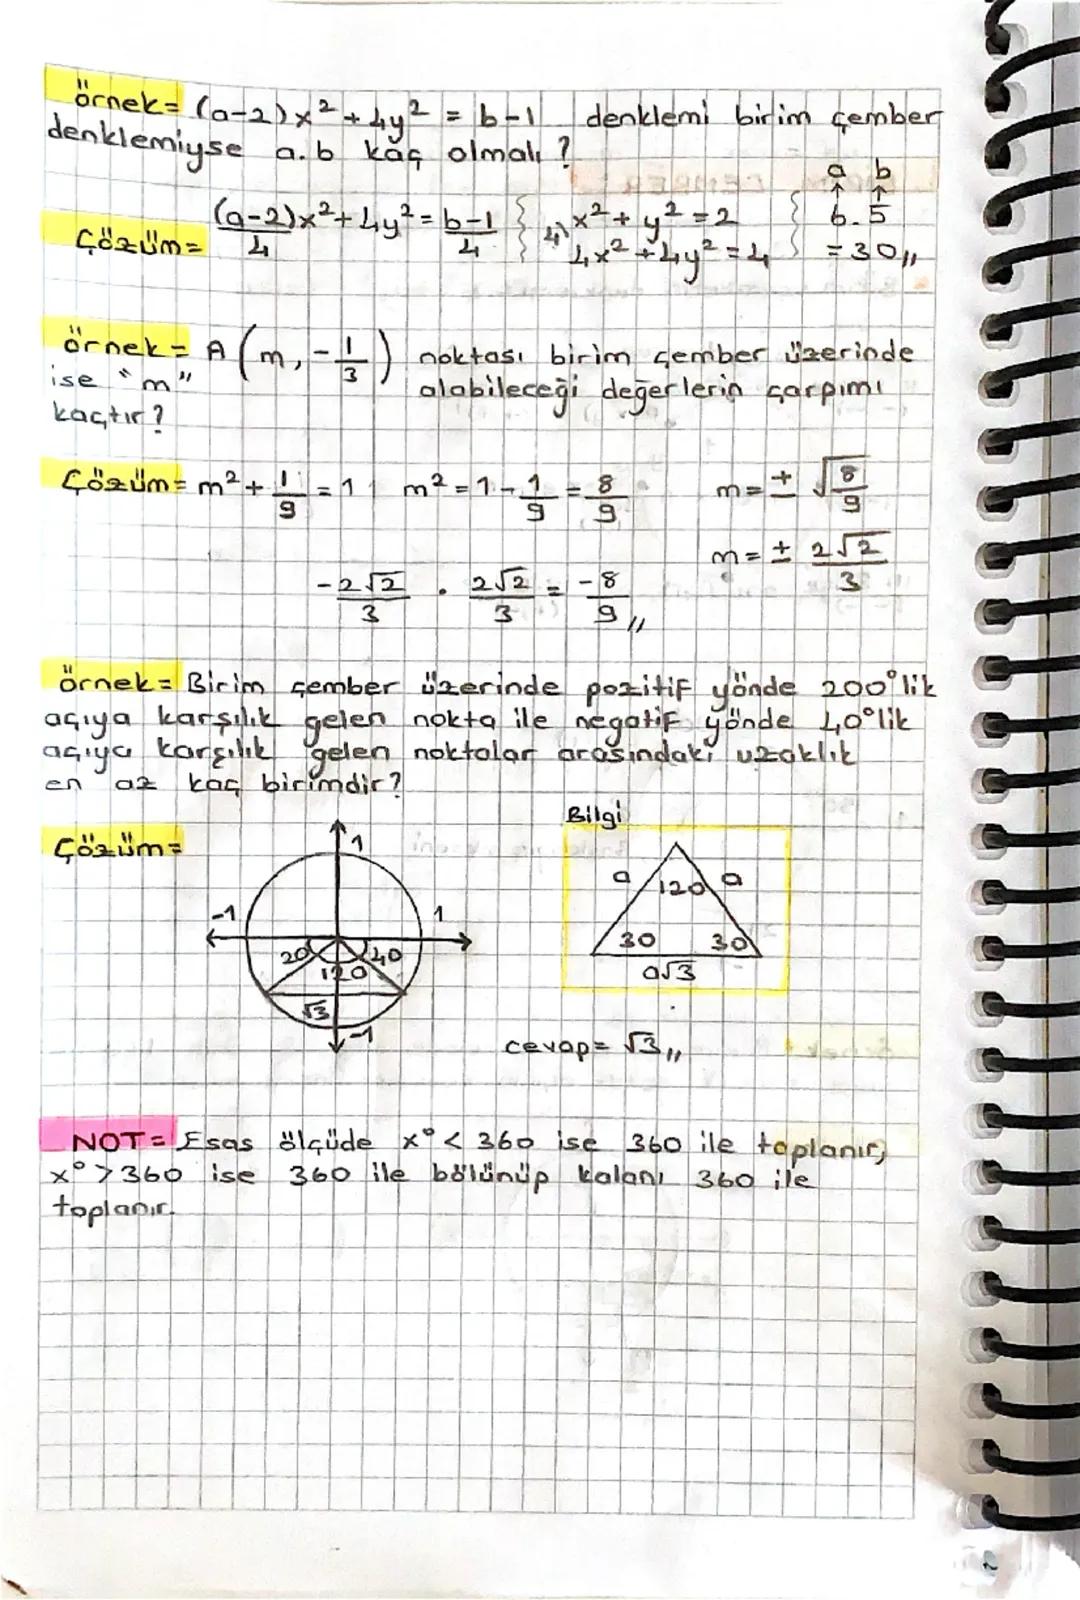 örnek= (a-2)x² + 4y² = b-1 denklemi birim çember
denklemiyse a.b kaç olmalı?
a b
Çözüm= (a-2)x² + 4y²/4 = b-1/4 4\ x² + y² = 2 6.5
4x² + 4y² = 4 = 30,,
örnek= A (m, -1/3) noktası birim çember üzerinde
ise "m" alabileceği değerlerin çarpımı
kaçtır?
Çözüm= m² + 1/9 = 1 m² = 1 - 1/9 = 8/9 m = ± √8/9
m = ± 2√2/3
-2√2/3 . 2√2/3 = -8/9,,
örnek= Birim çember üzerinde pozitif yönde 200°lik
açıya karşılık gelen nokta ile negatif yönde 40°lik
açıya karşılık gelen noktalar arasındaki uzaklık
en az kaç birimdir?
Bilgi
Çözüm=
1
-1 1
20 40
120
√3
-1
a 120 a
30 30
a√3
cevap= √3,,
NOT= Esas ölçüde x° < 360 ise 360 ile toplanır,
x° > 360 ise 360 ile bölünüp kalanı 360 ile
toplanır.